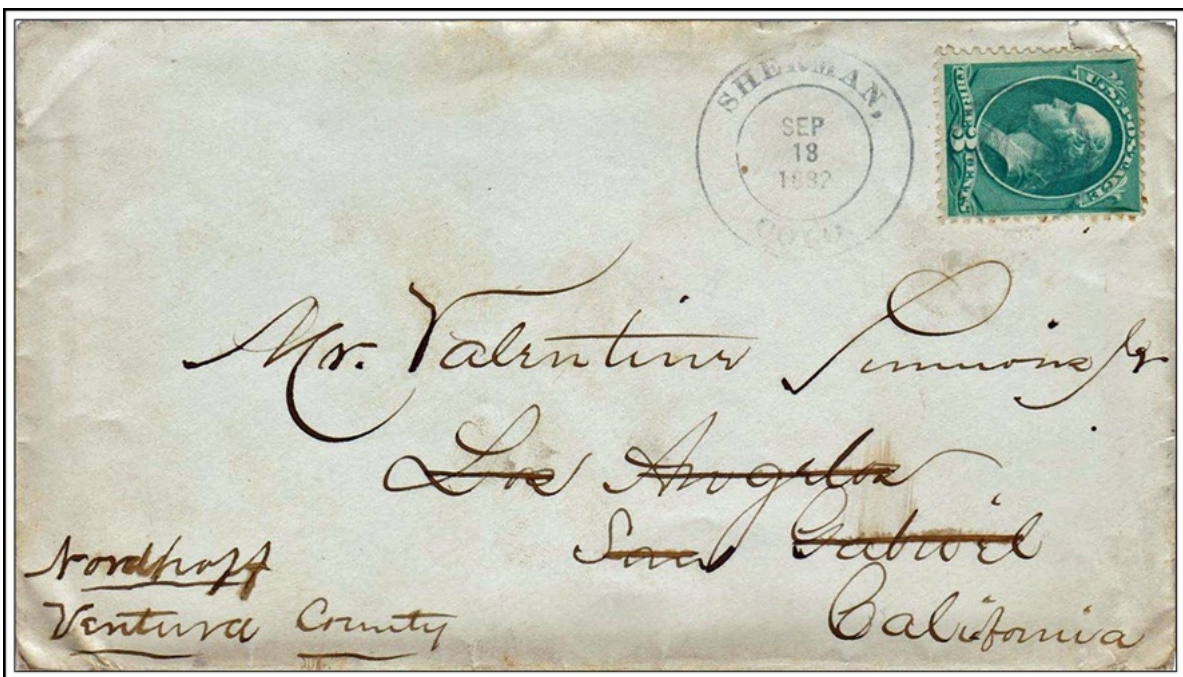 SHERMAN,
SEP
18
1882
COLO.
U.S. POSTAGE
THREE 3 CENTS
Mr. Valentine Simmons Jr
Los Angelos
San Gabriel
California
Nordhoff
Ventura County